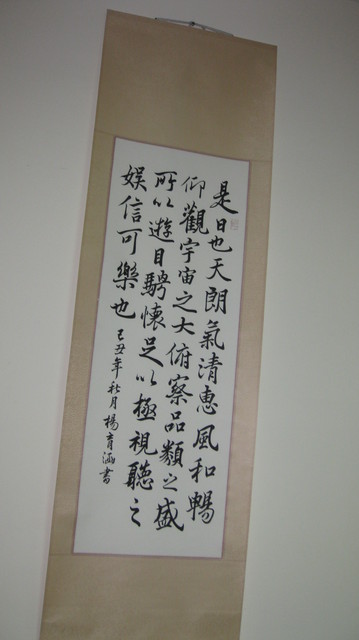 是日也天朗氣清惠風和暢
仰觀宇宙之大俯察品類之盛
所以遊目騁懷足以極視聽之
娱信可樂也
己丑年秋月楊育涵書